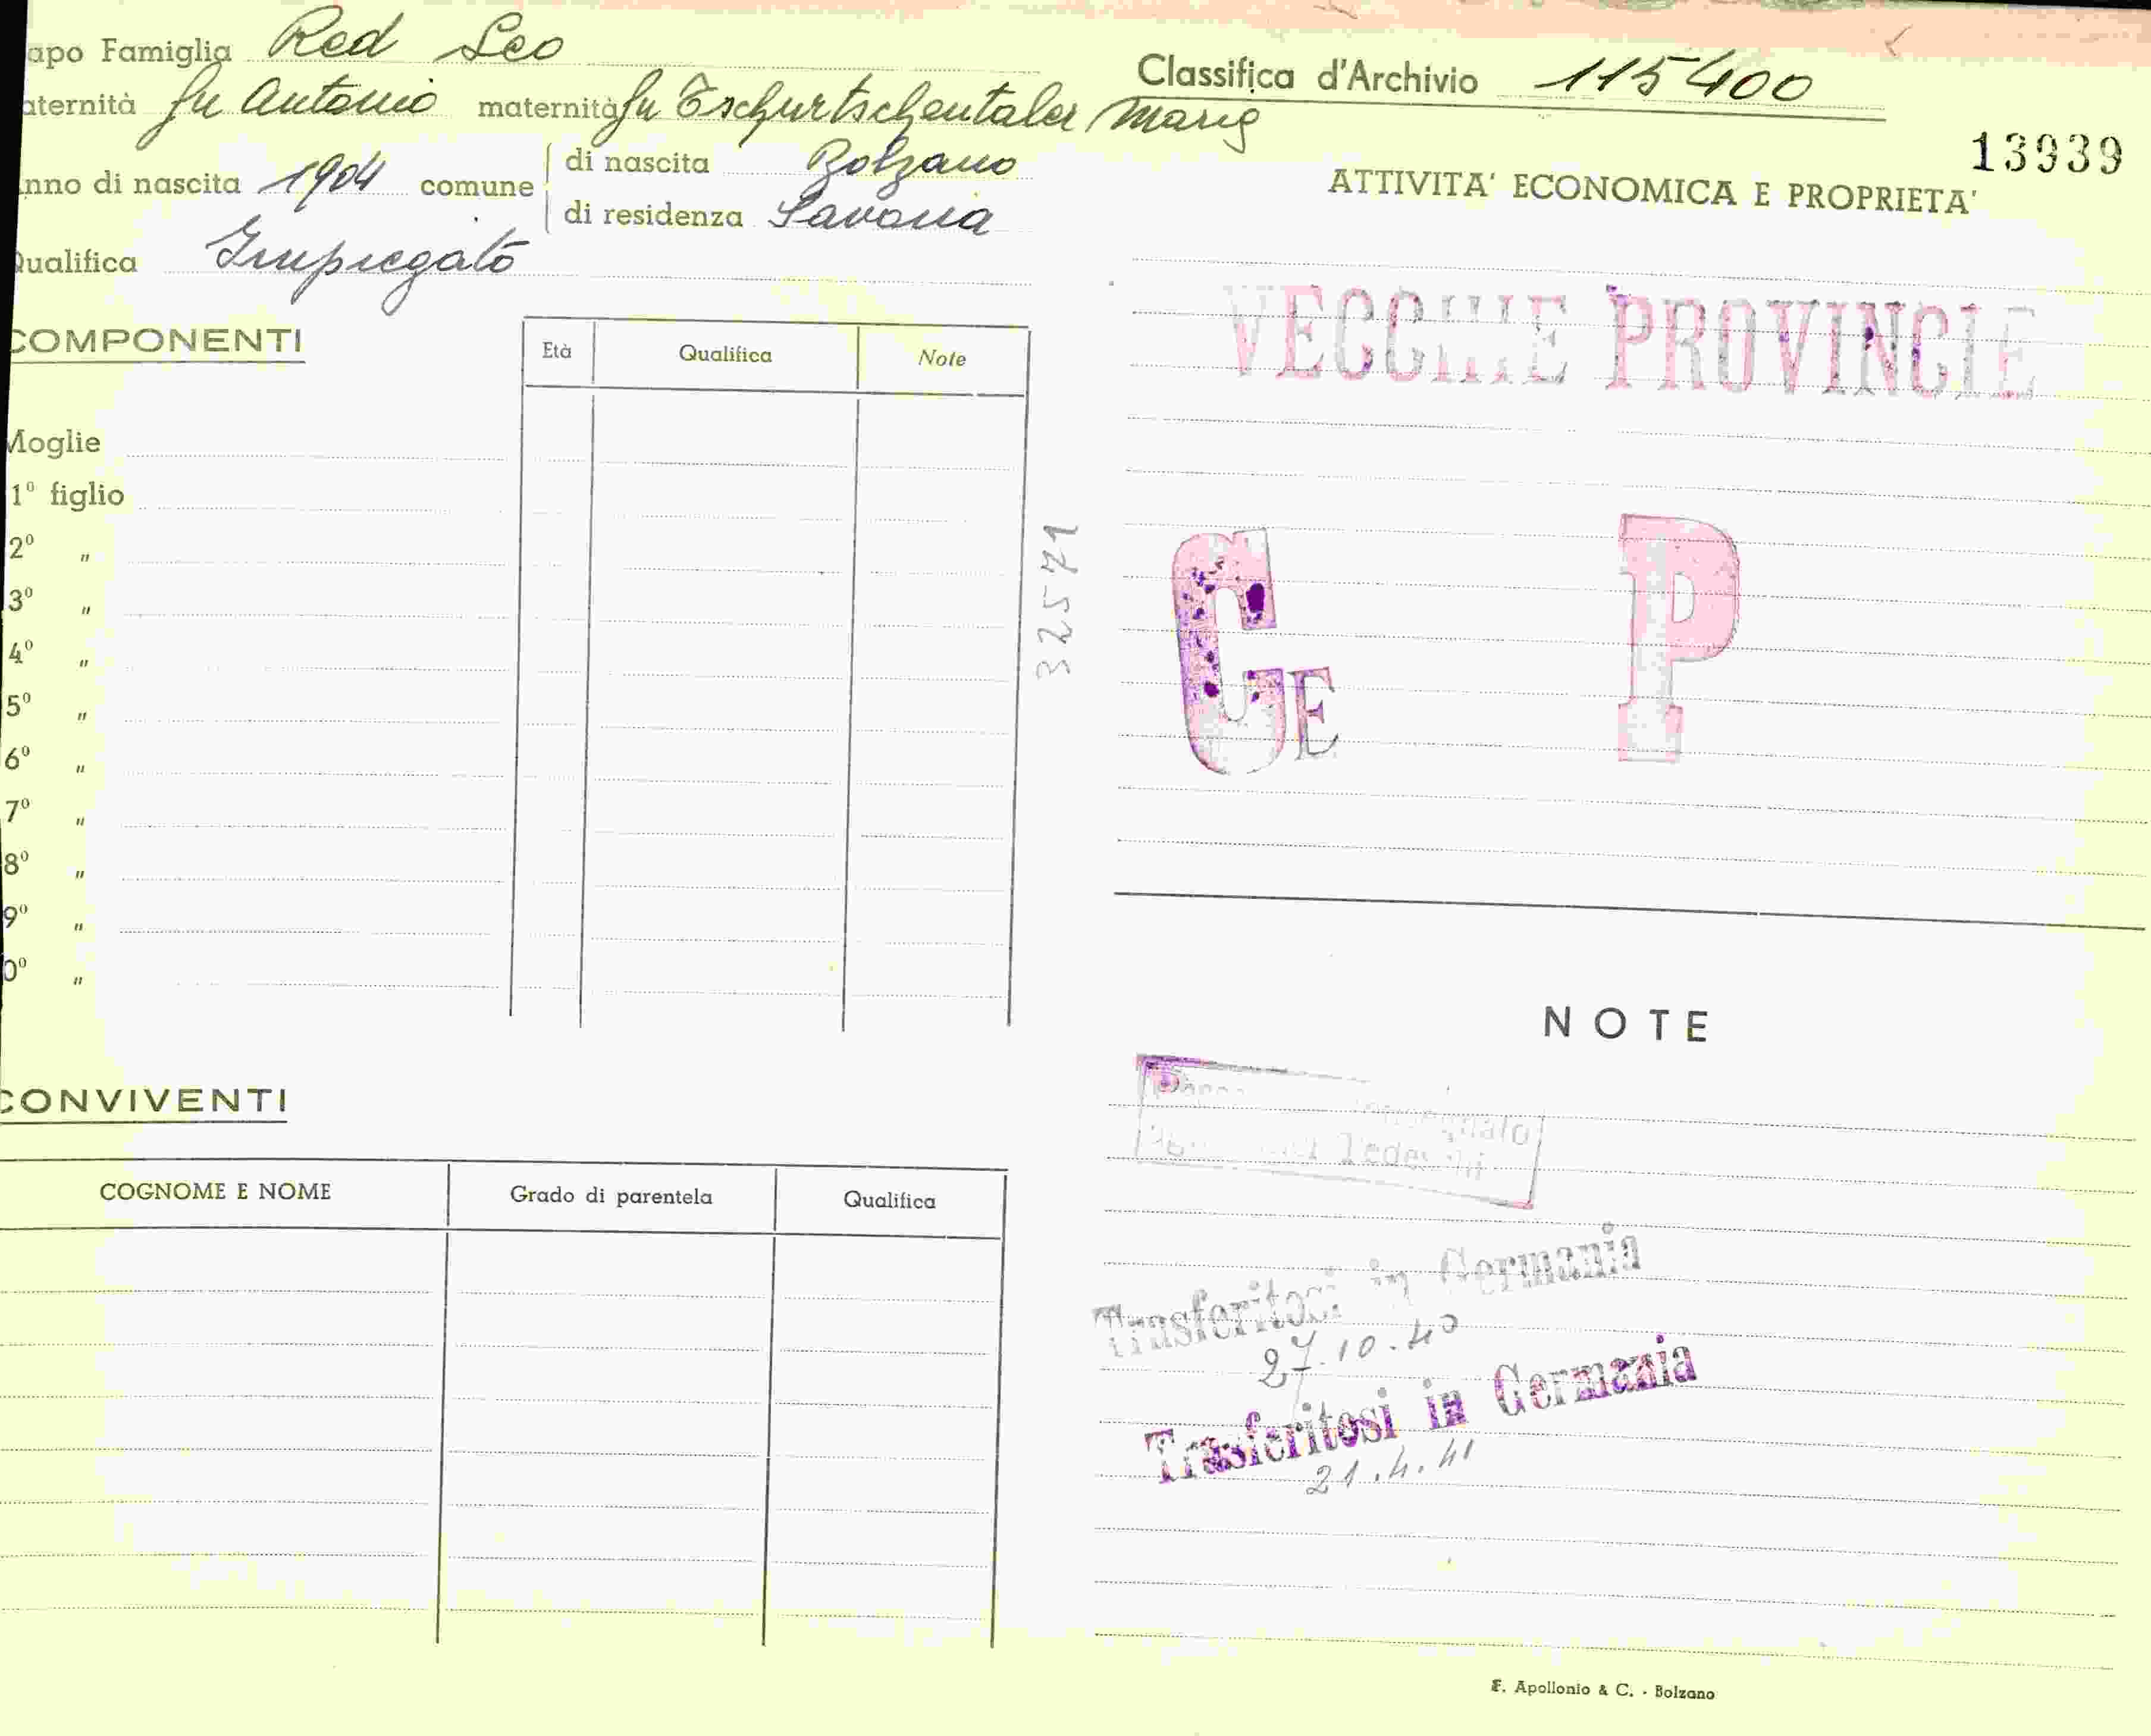 apo Famiglia Red Leo
aternità fu Antonio maternità fu Tschurtschentaler Maria
nno di nascita 1904 comune di nascita Bolzano
di residenza Savona
Qualifica Impiegato
COMPONENTI
Età Qualifica Note
Moglie
1º figlio
2º "
3º "
4º "
5º "
6º "
7º "
8º "
9º "
0º "
32571
CONVIVENTI
COGNOME E NOME Grado di parentela Qualifica
Classifica d'Archivio 115400
13939
ATTIVITA' ECONOMICA E PROPRIETA'
VECCHIE PROVINCIE
GE P
NOTE
Tedeschi
Trasferitosi in Germania
27.10.40
Trasferitosi in Germania
21.4.41
F. Apollonio & C. - Bolzano